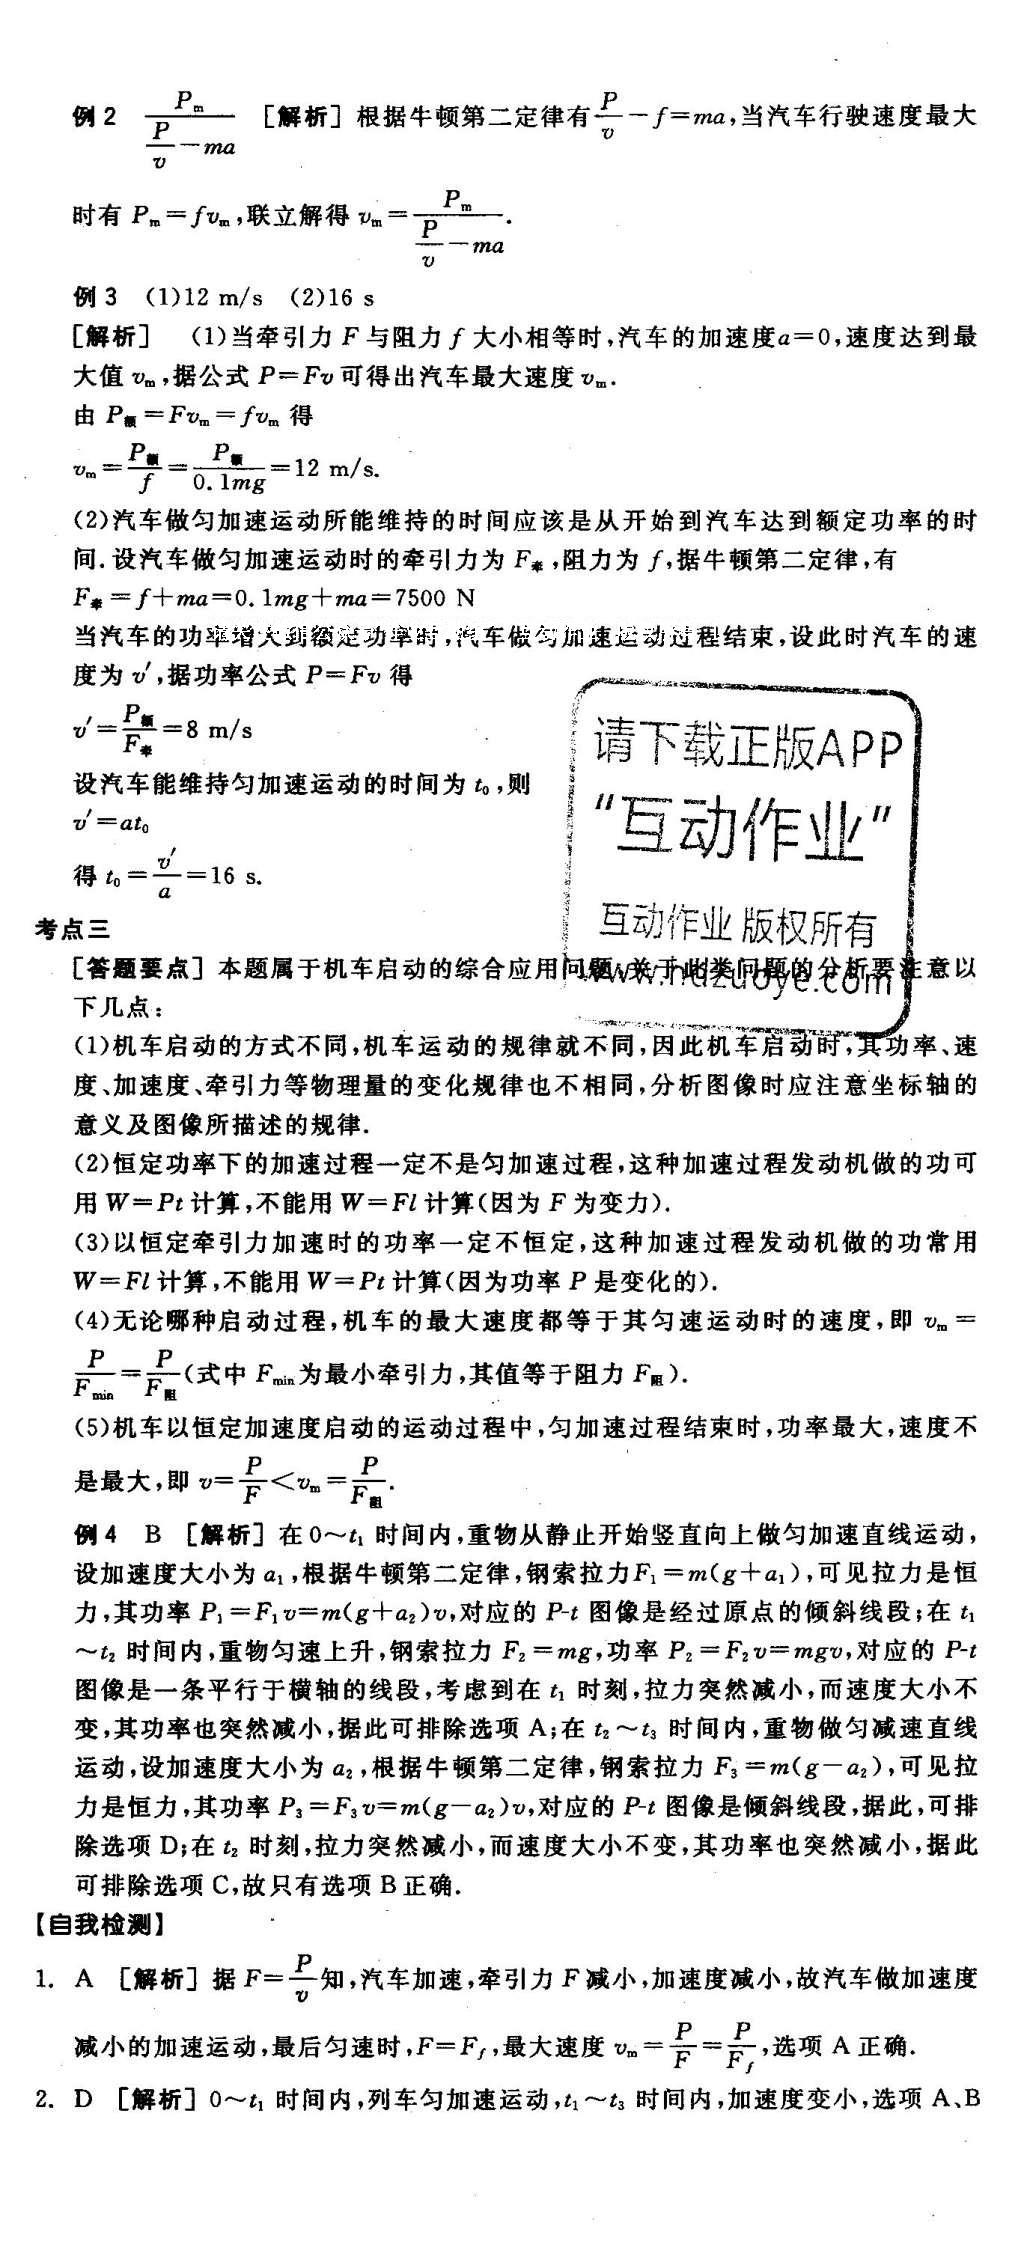 例2 \frac{P_m}{\frac{P}{v}-ma} [解析] 根据牛顿第二定律有\frac{P}{v}-f=ma,当汽车行驶速度最大
时有 P_m=fv_m,联立解得 v_m=\frac{P_m}{\frac{P}{v}-ma}.
例3 (1)12 m/s (2)16 s
[解析] (1)当牵引力 F 与阻力 f 大小相等时,汽车的加速度a=0,速度达到最
大值 v_m,据公式 P=Fv 可得出汽车最大速度 v_m.
由 P_额=Fv_m=fv_m 得
v_m=\frac{P_额}{f}=\frac{P_额}{0.1mg}=12 m/s.
(2)汽车做匀加速运动所能维持的时间应该是从开始到汽车达到额定功率的时
间.设汽车做匀加速运动时的牵引力为 F_牵,阻力为 f,据牛顿第二定律,有
F_牵=f+ma=0.1mg+ma=7500 N
当汽车的功率增大到额定功率时,汽车做匀加速运动过程结束,设此时汽车的速
度为 v′,据功率公式 P=Fv 得
v′=\frac{P_额}{F_牵}=8 m/s
设汽车能维持匀加速运动的时间为 t_0,则
v′=at_0
得 t_0=\frac{v′}{a}=16 s.
请下载正版APP
“互动作业”
互动作业 版权所有
www.hdzuoye.com
考点三
[答题要点] 本题属于机车启动的综合应用问题,关于此类问题的分析要注意以
下几点:
(1)机车启动的方式不同,机车运动的规律就不同,因此机车启动时,其功率、速
度、加速度、牵引力等物理量的变化规律也不相同,分析图像时应注意坐标轴的
意义及图像所描述的规律.
(2)恒定功率下的加速过程一定不是匀加速过程,这种加速过程发动机做的功可
用 W=Pt 计算,不能用 W=Fl 计算(因为 F 为变力).
(3)以恒定牵引力加速时的功率一定不恒定,这种加速过程发动机做的功常用
W=Fl 计算,不能用 W=Pt 计算(因为功率 P 是变化的).
(4)无论哪种启动过程,机车的最大速度都等于其匀速运动时的速度,即 v_m=
\frac{P}{F_min}=\frac{P}{F_阻}(式中 F_min为最小牵引力,其值等于阻力 F_阻).
(5)机车以恒定加速度启动的运动过程中,匀加速过程结束时,功率最大,速度不
是最大,即 v=\frac{P}{F}<v_m=\frac{P}{F_阻}.
例4 B [解析] 在0～t_1 时间内,重物从静止开始竖直向上做匀加速直线运动,
设加速度大小为 a_1,根据牛顿第二定律,钢索拉力F_1=m(g+a_1),可见拉力是恒
力,其功率 P_1=F_1v=m(g+a_2)v,对应的 P-t 图像是经过原点的倾斜线段;在 t_1
～t_2 时间内,重物匀速上升,钢索拉力 F_2=mg,功率 P_2=F_2v=mgv,对应的 P-t
图像是一条平行于横轴的线段,考虑到在 t_1 时刻,拉力突然减小,而速度大小不
变,其功率也突然减小,据此可排除选项 A;在 t_2～t_3 时间内,重物做匀减速直线
运动,设加速度大小为 a_2,根据牛顿第二定律,钢索拉力 F_3=m(g-a_2),可见拉
力是恒力,其功率 P_3=F_3v=m(g-a_2)v,对应的 P-t 图像是倾斜线段,据此,可排
除选项 D;在 t_2 时刻,拉力突然减小,而速度大小不变,其功率也突然减小,据此
可排除选项 C,故只有选项 B 正确.
【自我检测】
1. A [解析] 据 F=\frac{P}{v}知,汽车加速,牵引力 F 减小,加速度减小,故汽车做加速度
减小的加速运动,最后匀速时,F=F_f,最大速度 v_m=\frac{P}{F}=\frac{P}{F_f},选项 A 正确.
2. D [解析] 0～t_1 时间内,列车匀加速运动,t_1～t_3 时间内,加速度变小,选项 A、B